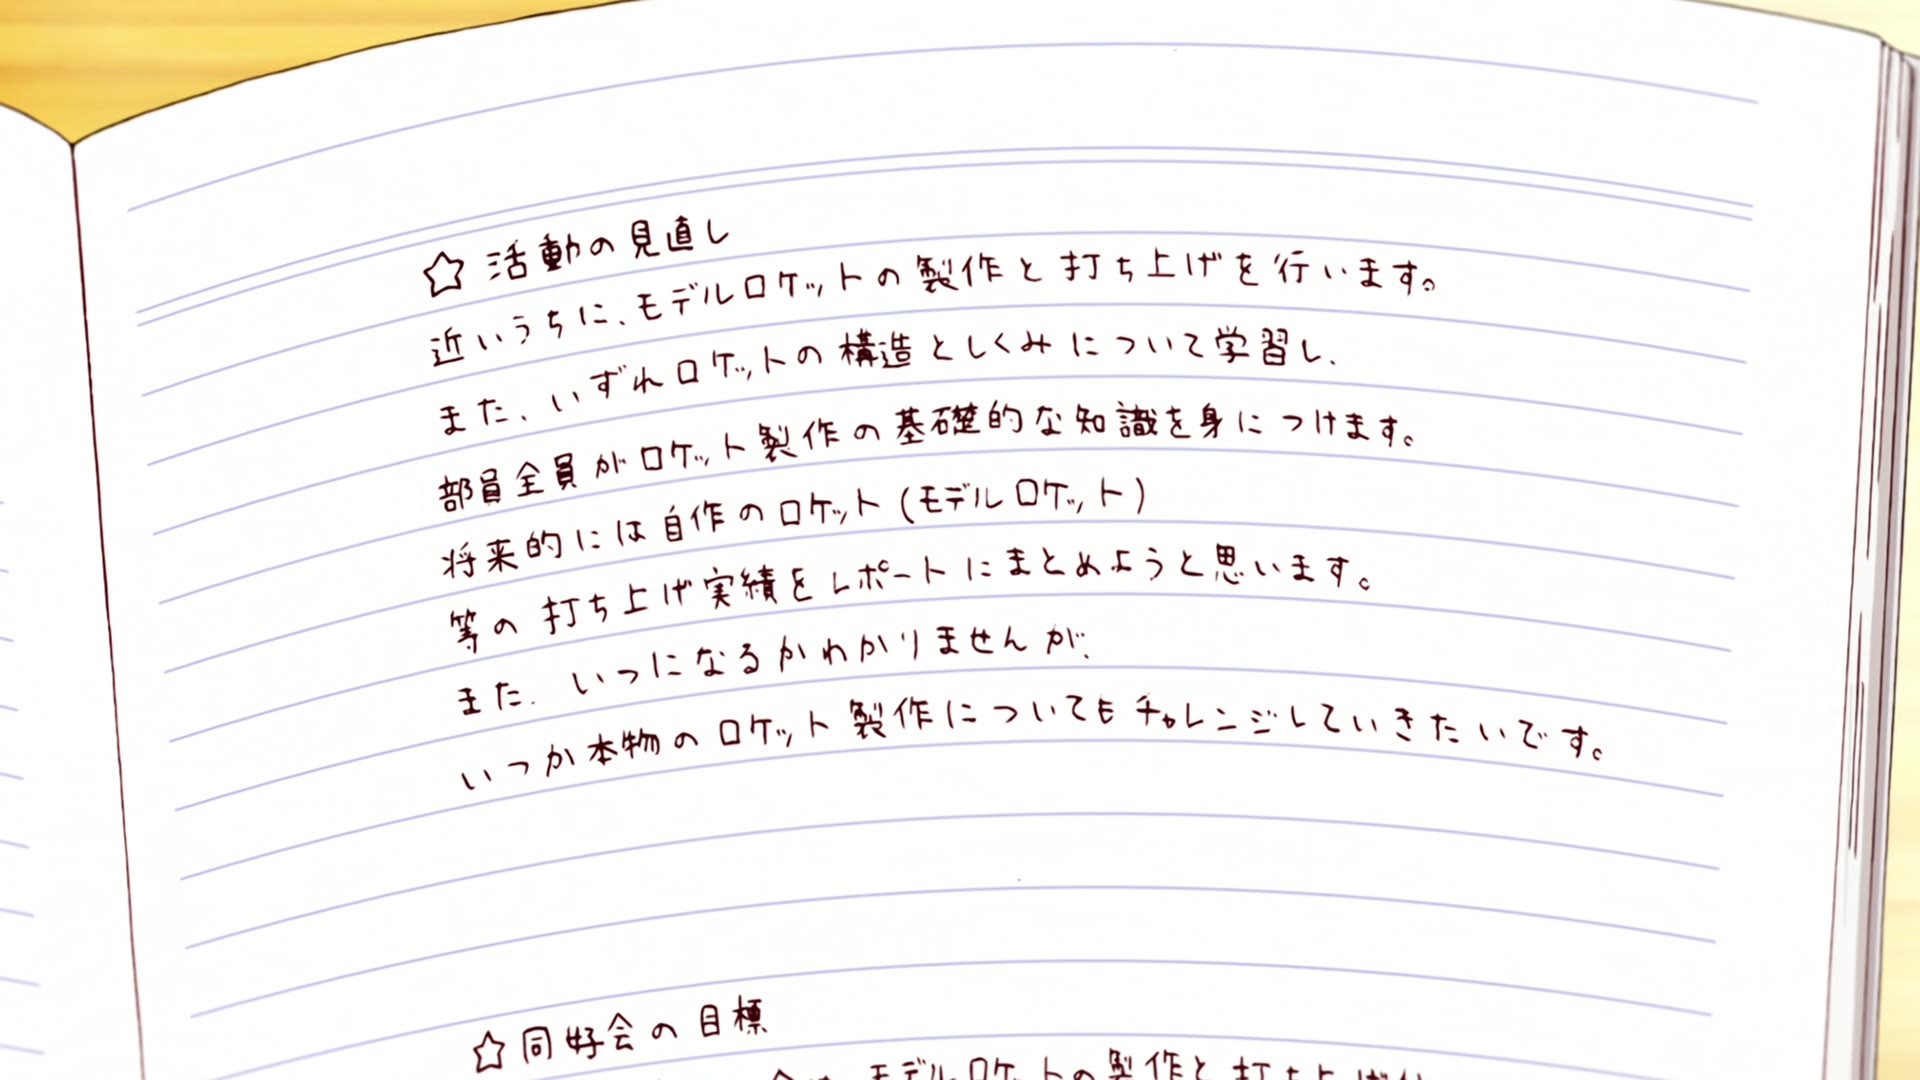 ☆活動の見直し
近いうちに、モデルロケットの製作と打ち上げを行います。
また、いずれロケットの構造としくみについて学習し、
部員全員がロケット製作の基礎的な知識を身につけます。
将来的には自作のロケット(モデルロケット)
等の打ち上げ実績をレポートにまとめようと思います。
また、いつになるかわかりませんが、
いつか本物のロケット製作についてもチャレンジしていきたいです。
☆同好会の目標
モデルロケットの製作と打ち上げ